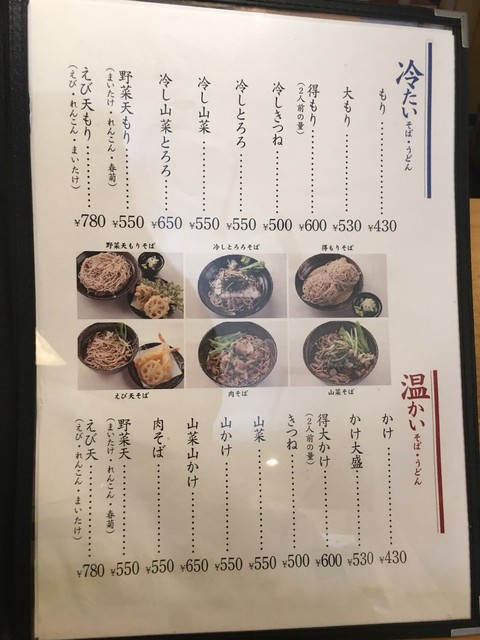 冷たい そば・うどん
もり ¥430
大もり ¥530
得もり ¥600
(2人前の量)
冷しきつね ¥500
冷しとろろ ¥550
冷し山菜 ¥550
冷し山菜とろろ ¥650
野菜天もり ¥550
(まいたけ・れんこん・春菊)
えび天もり ¥780
(えび・れんこん・まいたけ)
野菜天もりそば
冷しとろろそば
得もりそば
えび天そば
肉そば
山菜そば
温かい そば・うどん
かけ ¥430
かけ大盛 ¥530
得大かけ ¥600
(2人前の量)
きつね ¥500
山菜 ¥550
山かけ ¥550
山菜山かけ ¥650
肉そば ¥550
野菜天 ¥550
(まいたけ・れんこん・春菊)
えび天 ¥780
(えび・れんこん・まいたけ)